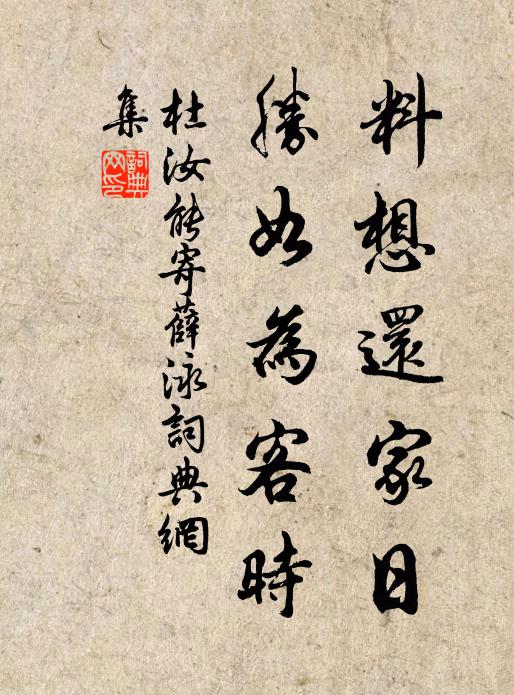 料想還家日
勝如為客時
杜汝能寄薛泳詞典網
集
詞典網印